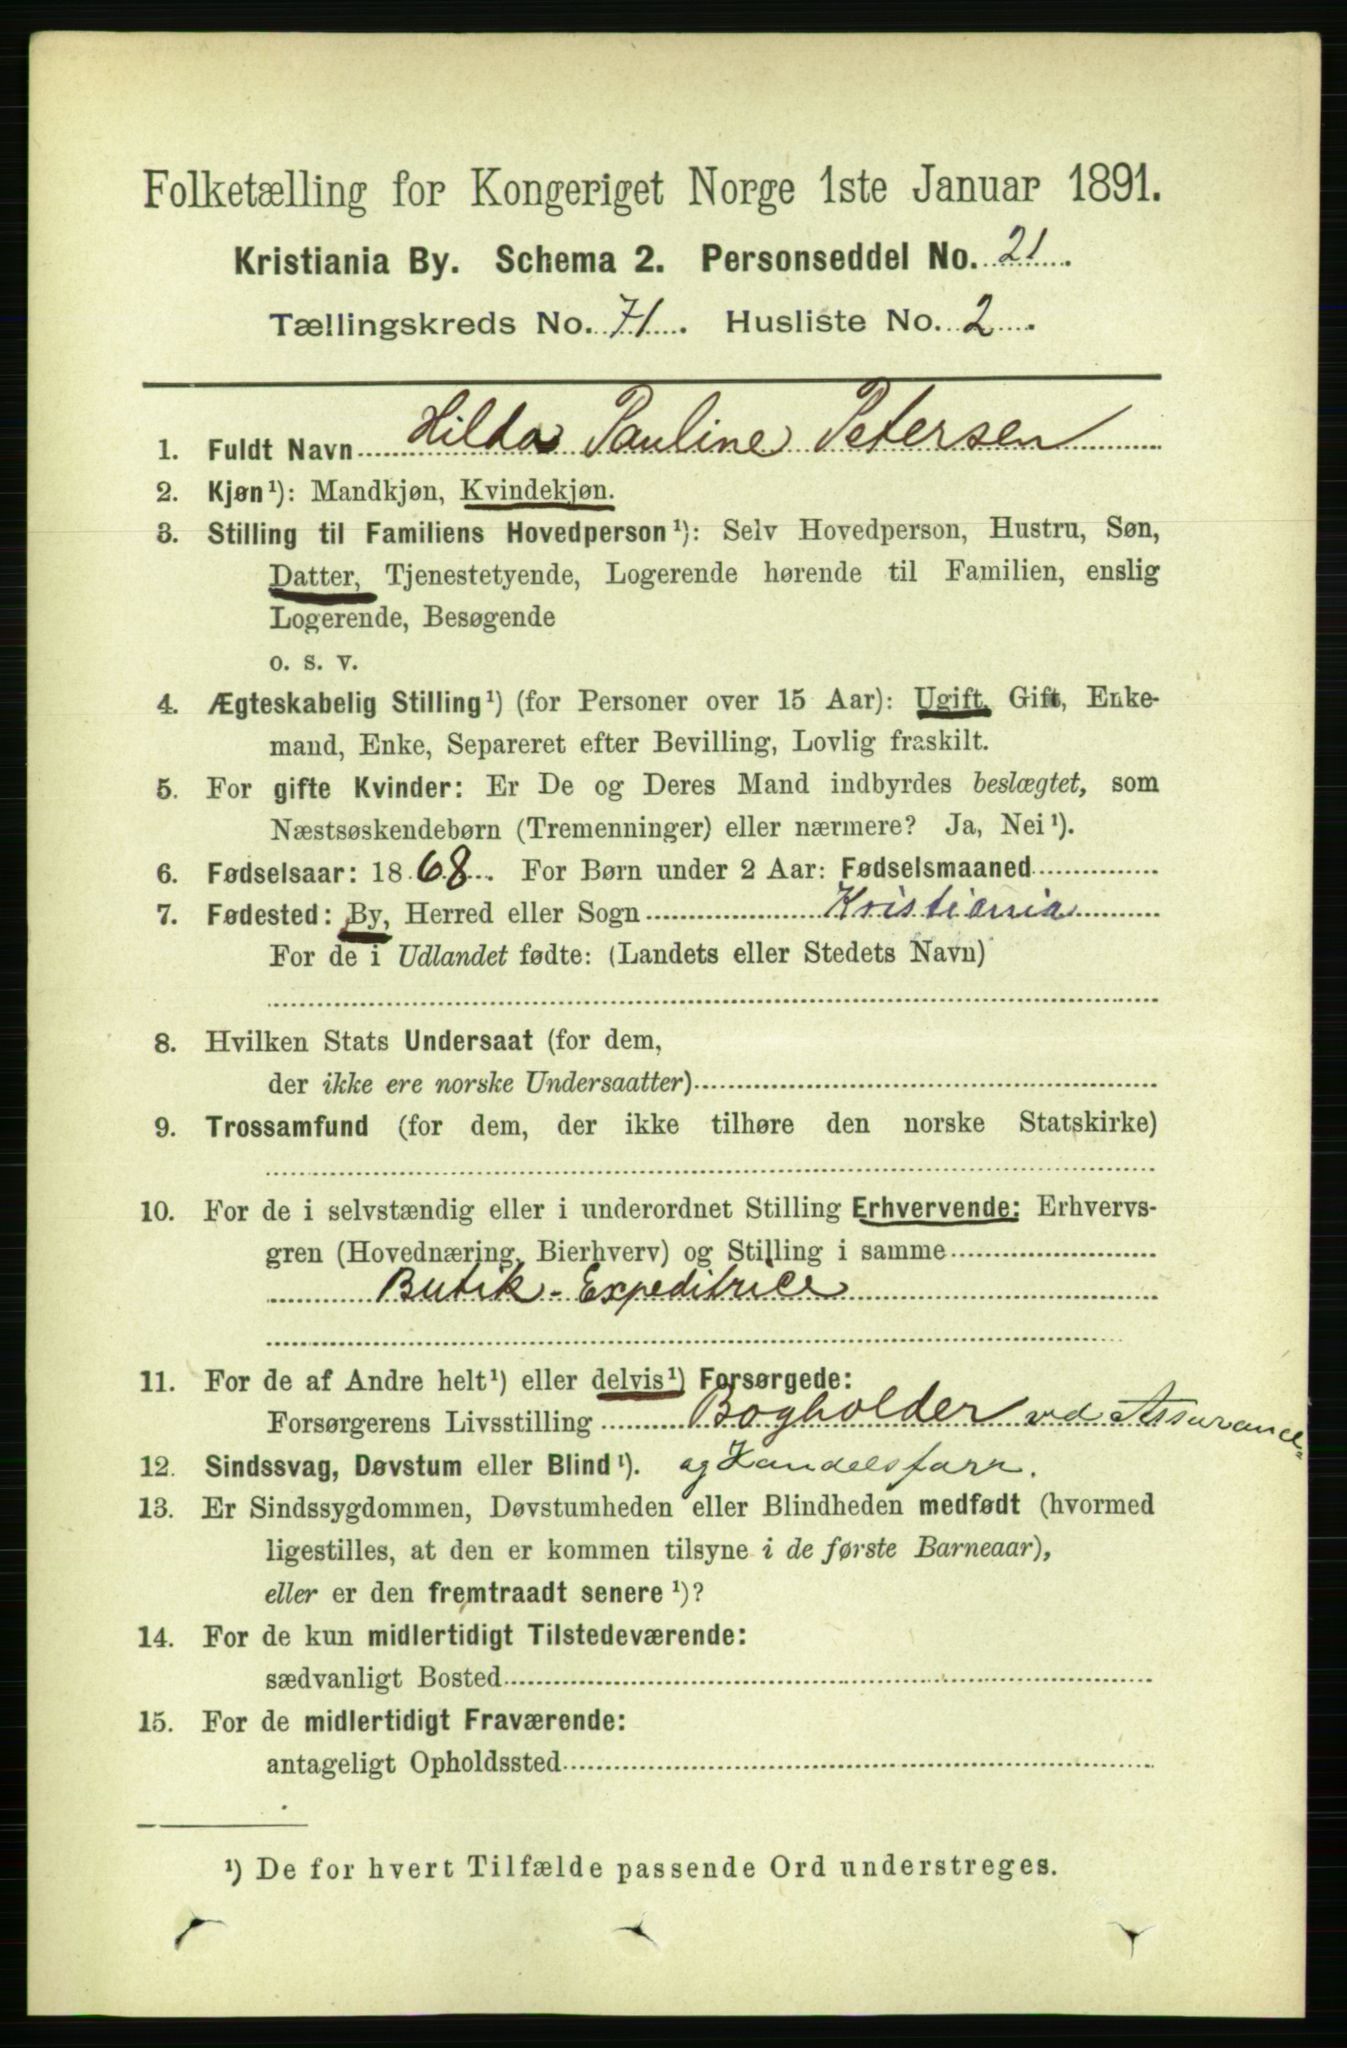 Folketælling for Kongeriget Norge 1ste Januar 1891.
Kristiania By. Schema 2. Personseddel No. 21.
Tællingskreds No. 71. Husliste No. 2.
1. Fuldt Navn Hilda Pauline Petersen
2. Kjøn¹): Mandkjøn, Kvindekjøn.
3. Stilling til Familiens Hovedperson¹): Selv Hovedperson, Hustru, Søn,
Datter, Tjenestetyende, Logerende hørende til Familien, enslig
Logerende, Besøgende
o. s. v.
4. Ægteskabelig Stilling¹) (for Personer over 15 Aar): Ugift, Gift, Enke-
mand, Enke, Separeret efter Bevilling, Lovlig fraskilt.
5. For gifte Kvinder: Er De og Deres Mand indbyrdes beslægtet, som
Næstsøskendebørn (Tremenninger) eller nærmere? Ja, Nei¹).
6. Fødselsaar: 1868. For Børn under 2 Aar: Fødselsmaaned
7. Fødested: By, Herred eller Sogn Kristiania
For de i Udlandet fødte: (Landets eller Stedets Navn)
8. Hvilken Stats Undersaat (for dem,
der ikke ere norske Undersaatter)
9. Trossamfund (for dem, der ikke tilhøre den norske Statskirke)
10. For de i selvstændig eller i underordnet Stilling Erhvervende: Erhvervs-
gren (Hovednæring, Bierhverv) og Stilling i samme
Butik-Expeditrice
11. For de af Andre helt¹) eller delvis¹) Forsørgede:
Forsørgerens Livsstilling Bogholder ved Assurance
12. Sindssvag, Døvstum eller Blind¹). og Handelsforr.
13. Er Sindssygdommen, Døvstumheden eller Blindheden medfødt (hvormed
ligestilles, at den er kommen tilsyne i de første Barneaar),
eller er den fremtraadt senere¹)?
14. For de kun midlertidigt Tilstedeværende:
sædvanligt Bosted
15. For de midlertidigt Fraværende:
antageligt Opholdssted
¹) De for hvert Tilfælde passende Ord understreges.